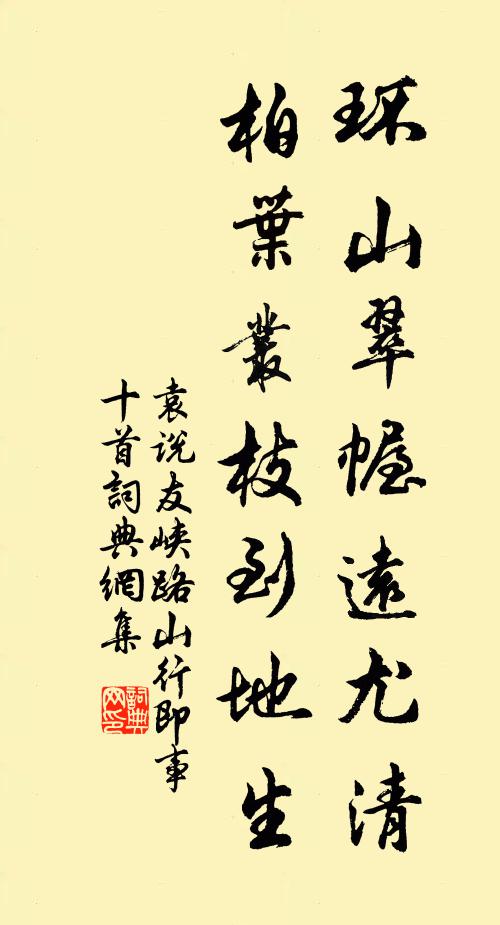 环山翠幄远尤清
柏葉叢枝到地生
袁说友峡路山行即事
十首詞典網集
詞典网印